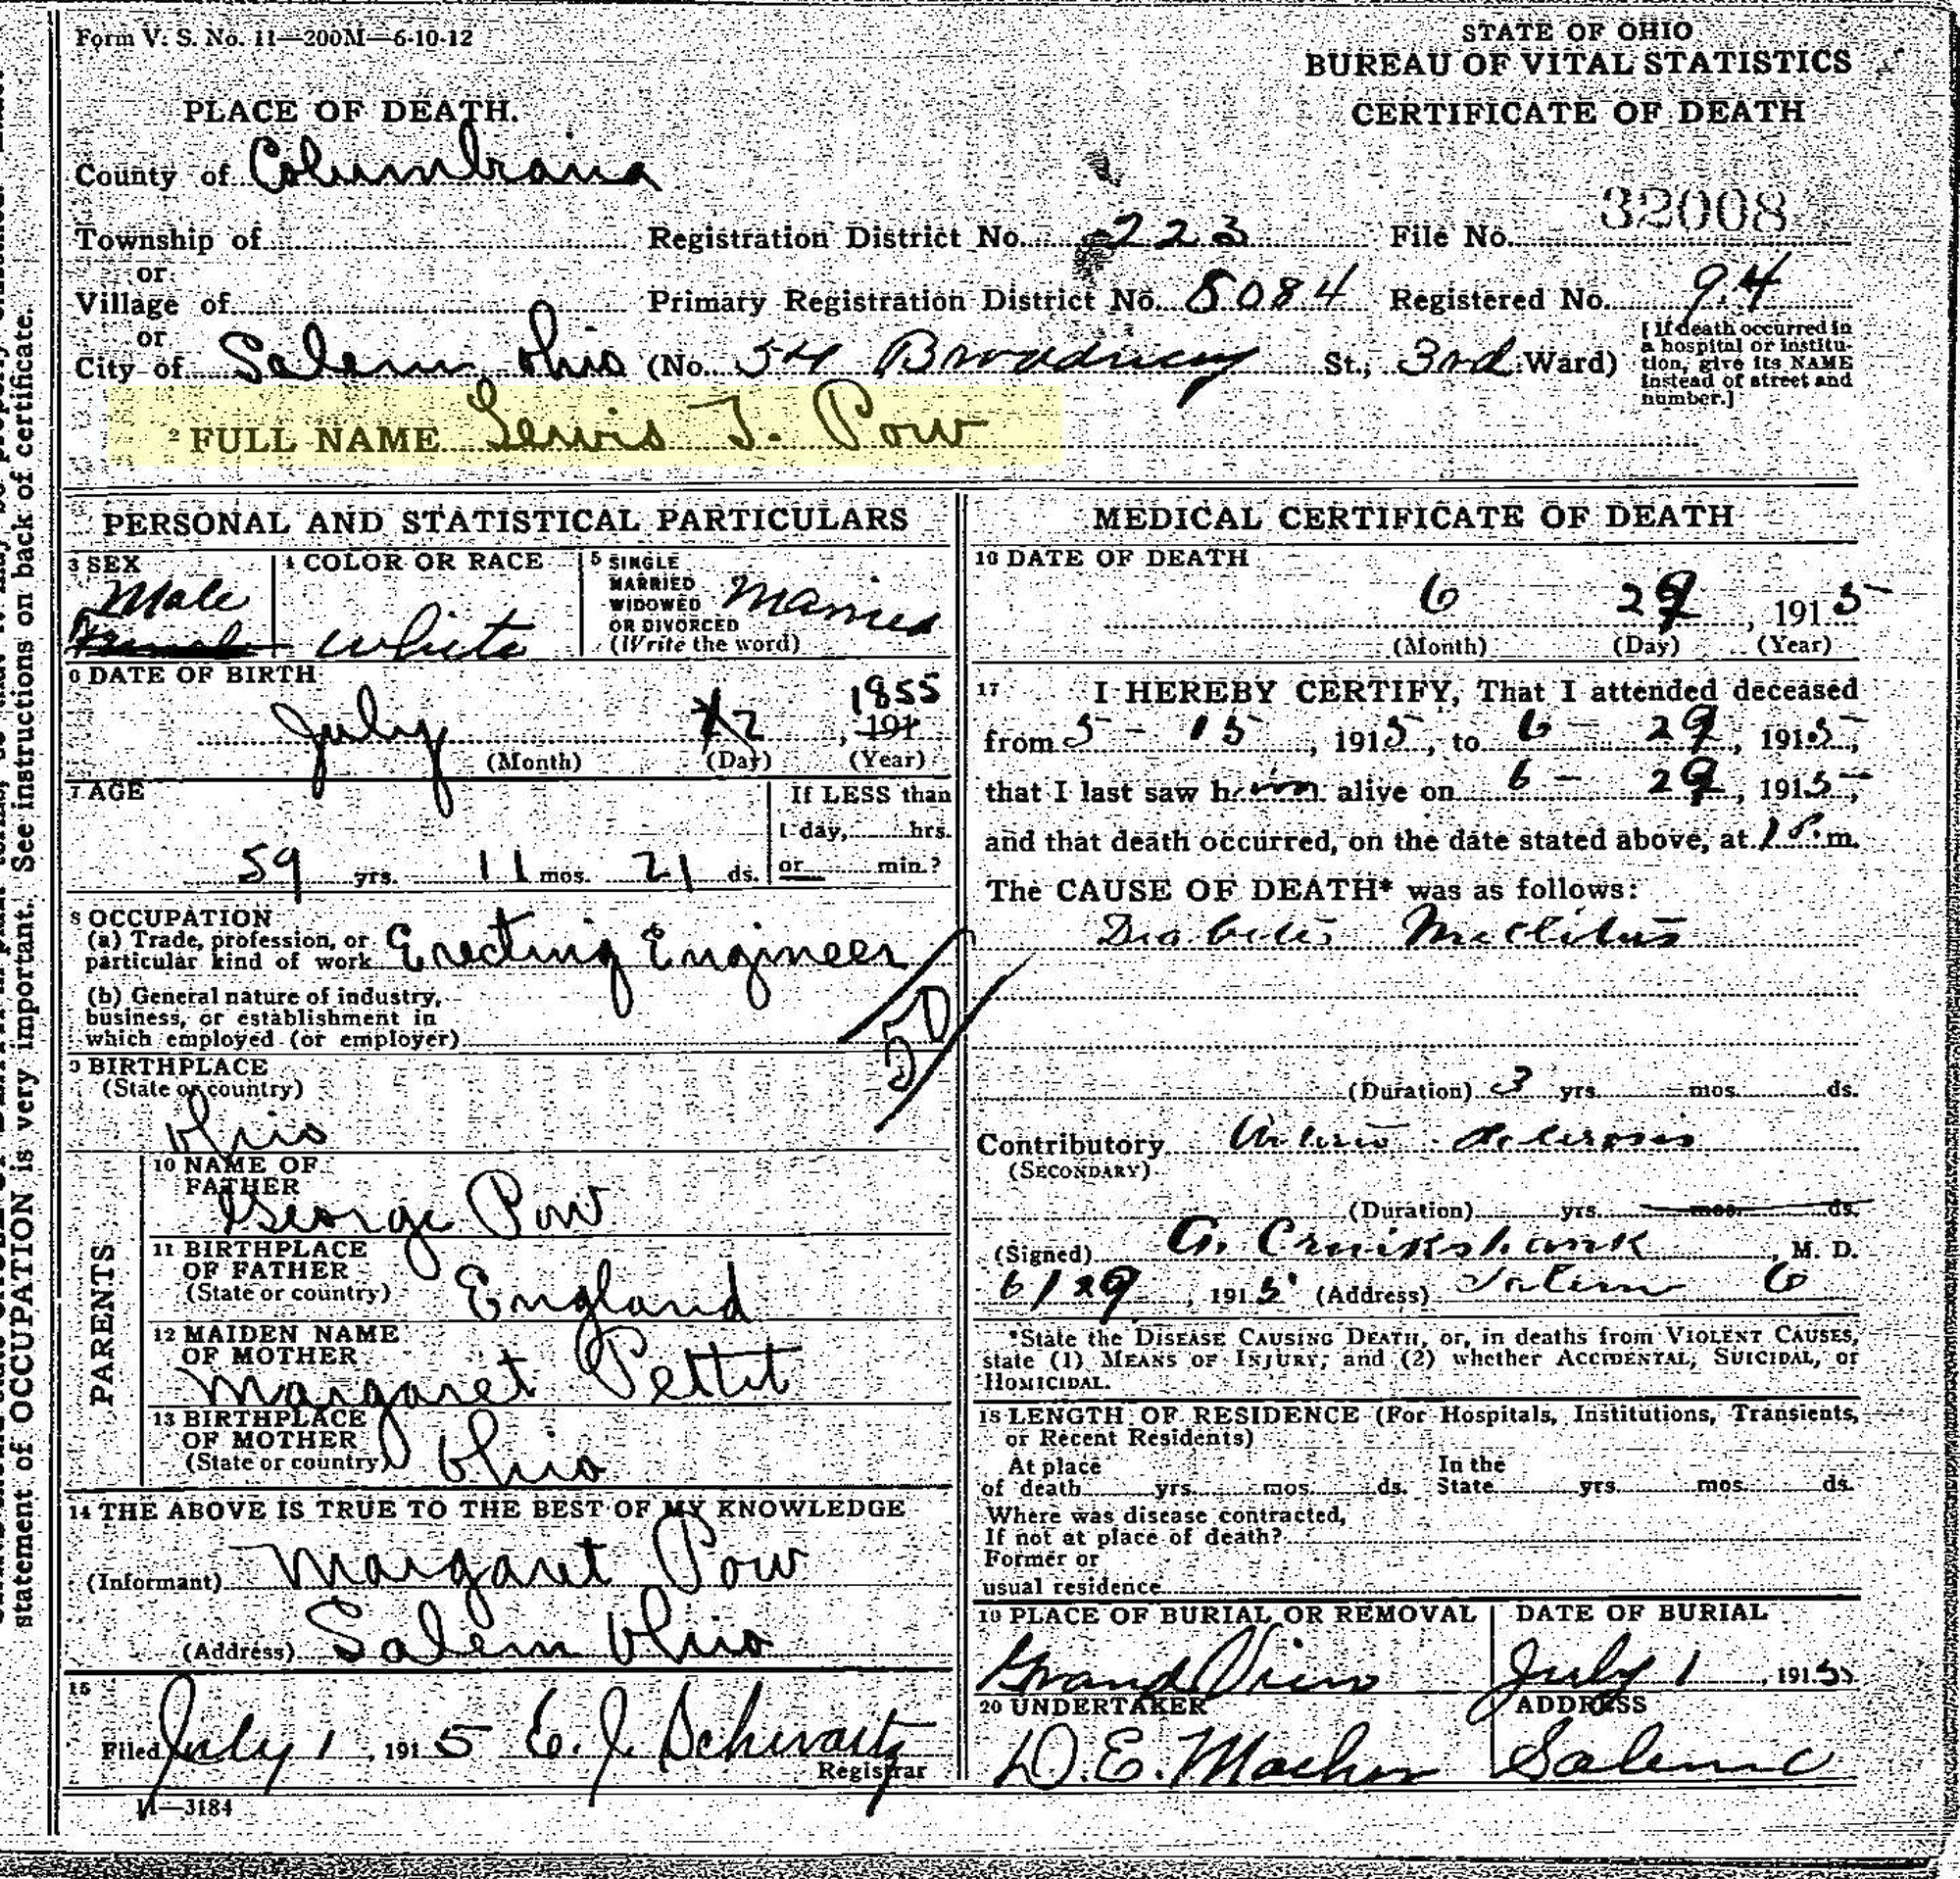 Form V. S. No. 11—200M—6-10-12
STATE OF OHIO
BUREAU OF VITAL STATISTICS
CERTIFICATE OF DEATH
PLACE OF DEATH.
County of Columbiana
32008
Township of Registration District No. 223 File No.
or
Village of Primary Registration District No. 8084 Registered No. 94
or
City of Salem, Ohio (No. 54 Broadway St., 3rd Ward)
[If death occurred in
a hospital or institu-
tion, give its NAME
instead of street and
number.]
2 FULL NAME Lewis T. Pow
PERSONAL AND STATISTICAL PARTICULARS
3 SEX
Male
4 COLOR OR RACE
White
5 SINGLE
MARRIED
WIDOWED
OR DIVORCED
(Write the word)
Married
6 DATE OF BIRTH
July 2, 1855
191
(Month) (Day) (Year)
7 AGE
59 yrs. 11 mos. 21 ds.
If LESS than
1 day, hrs.
or min.?
8 OCCUPATION
(a) Trade, profession, or
particular kind of work Erecting Engineer
(b) General nature of industry,
business, or establishment in
which employed (or employer)
50
9 BIRTHPLACE
(State or country)
Ohio
PARENTS
10 NAME OF
FATHER
George Pow
11 BIRTHPLACE
OF FATHER
(State or country) England
12 MAIDEN NAME
OF MOTHER
Margaret Pettit
13 BIRTHPLACE
OF MOTHER
(State or country) Ohio
14 THE ABOVE IS TRUE TO THE BEST OF MY KNOWLEDGE
(Informant) Margaret Pow
(Address) Salem Ohio
15
Filed July 1, 1915 E. J. Schwartz
Registrar
11—3184
MEDICAL CERTIFICATE OF DEATH
16 DATE OF DEATH
6 29, 1915
(Month) (Day) (Year)
17 I HEREBY CERTIFY, That I attended deceased
from 5 - 15, 1915, to 6 - 29, 1915,
that I last saw him alive on 6 - 29, 1915,
and that death occurred, on the date stated above, at 1 P. m.
The CAUSE OF DEATH* was as follows:
Diabetes Mellitus
(Duration) 3 yrs. mos. ds.
Contributory Arterio sclerosis
(SECONDARY)
(Duration) yrs. mos. ds.
(Signed) G. Cruikshank, M. D.
6/29, 1915 (Address) Salem O
*State the DISEASE CAUSING DEATH, or, in deaths from VIOLENT CAUSES,
state (1) MEANS OF INJURY; and (2) whether ACCIDENTAL, SUICIDAL, or
HOMICIDAL.
18 LENGTH OF RESIDENCE (For Hospitals, Institutions, Transients,
or Recent Residents)
At place In the
of death yrs. mos. ds. State yrs. mos. ds.
Where was disease contracted,
If not at place of death?
Former or
usual residence
19 PLACE OF BURIAL OR REMOVAL
Grand View
DATE OF BURIAL
July 1, 1915
20 UNDERTAKER
D. E. Mather
ADDRESS
Salem O
statement of OCCUPATION is very important. See instructions on back of certificate.